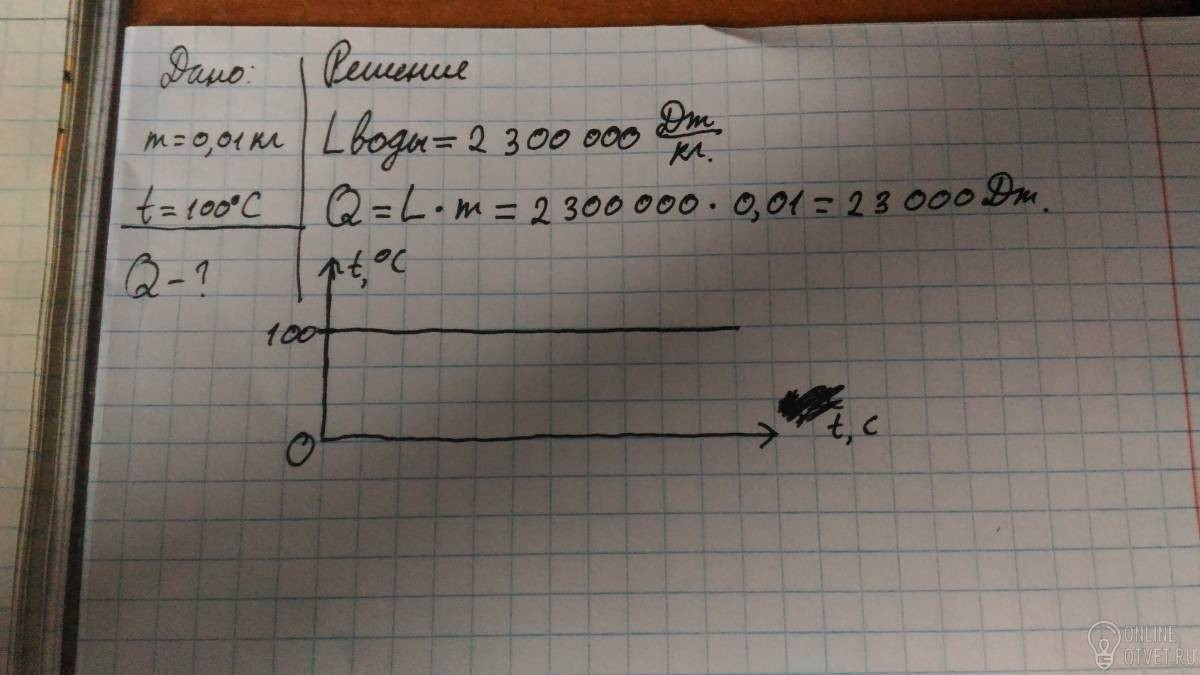 Дано:
m=0,01 кг
t=100°C
Q-?
Решение
Lводы=2 300 000 Дж/кг.
Q=L·m=2300000·0,01=23 000 Дж.
t,°C
100
0
t,c
ONLINE
OTVET.RU